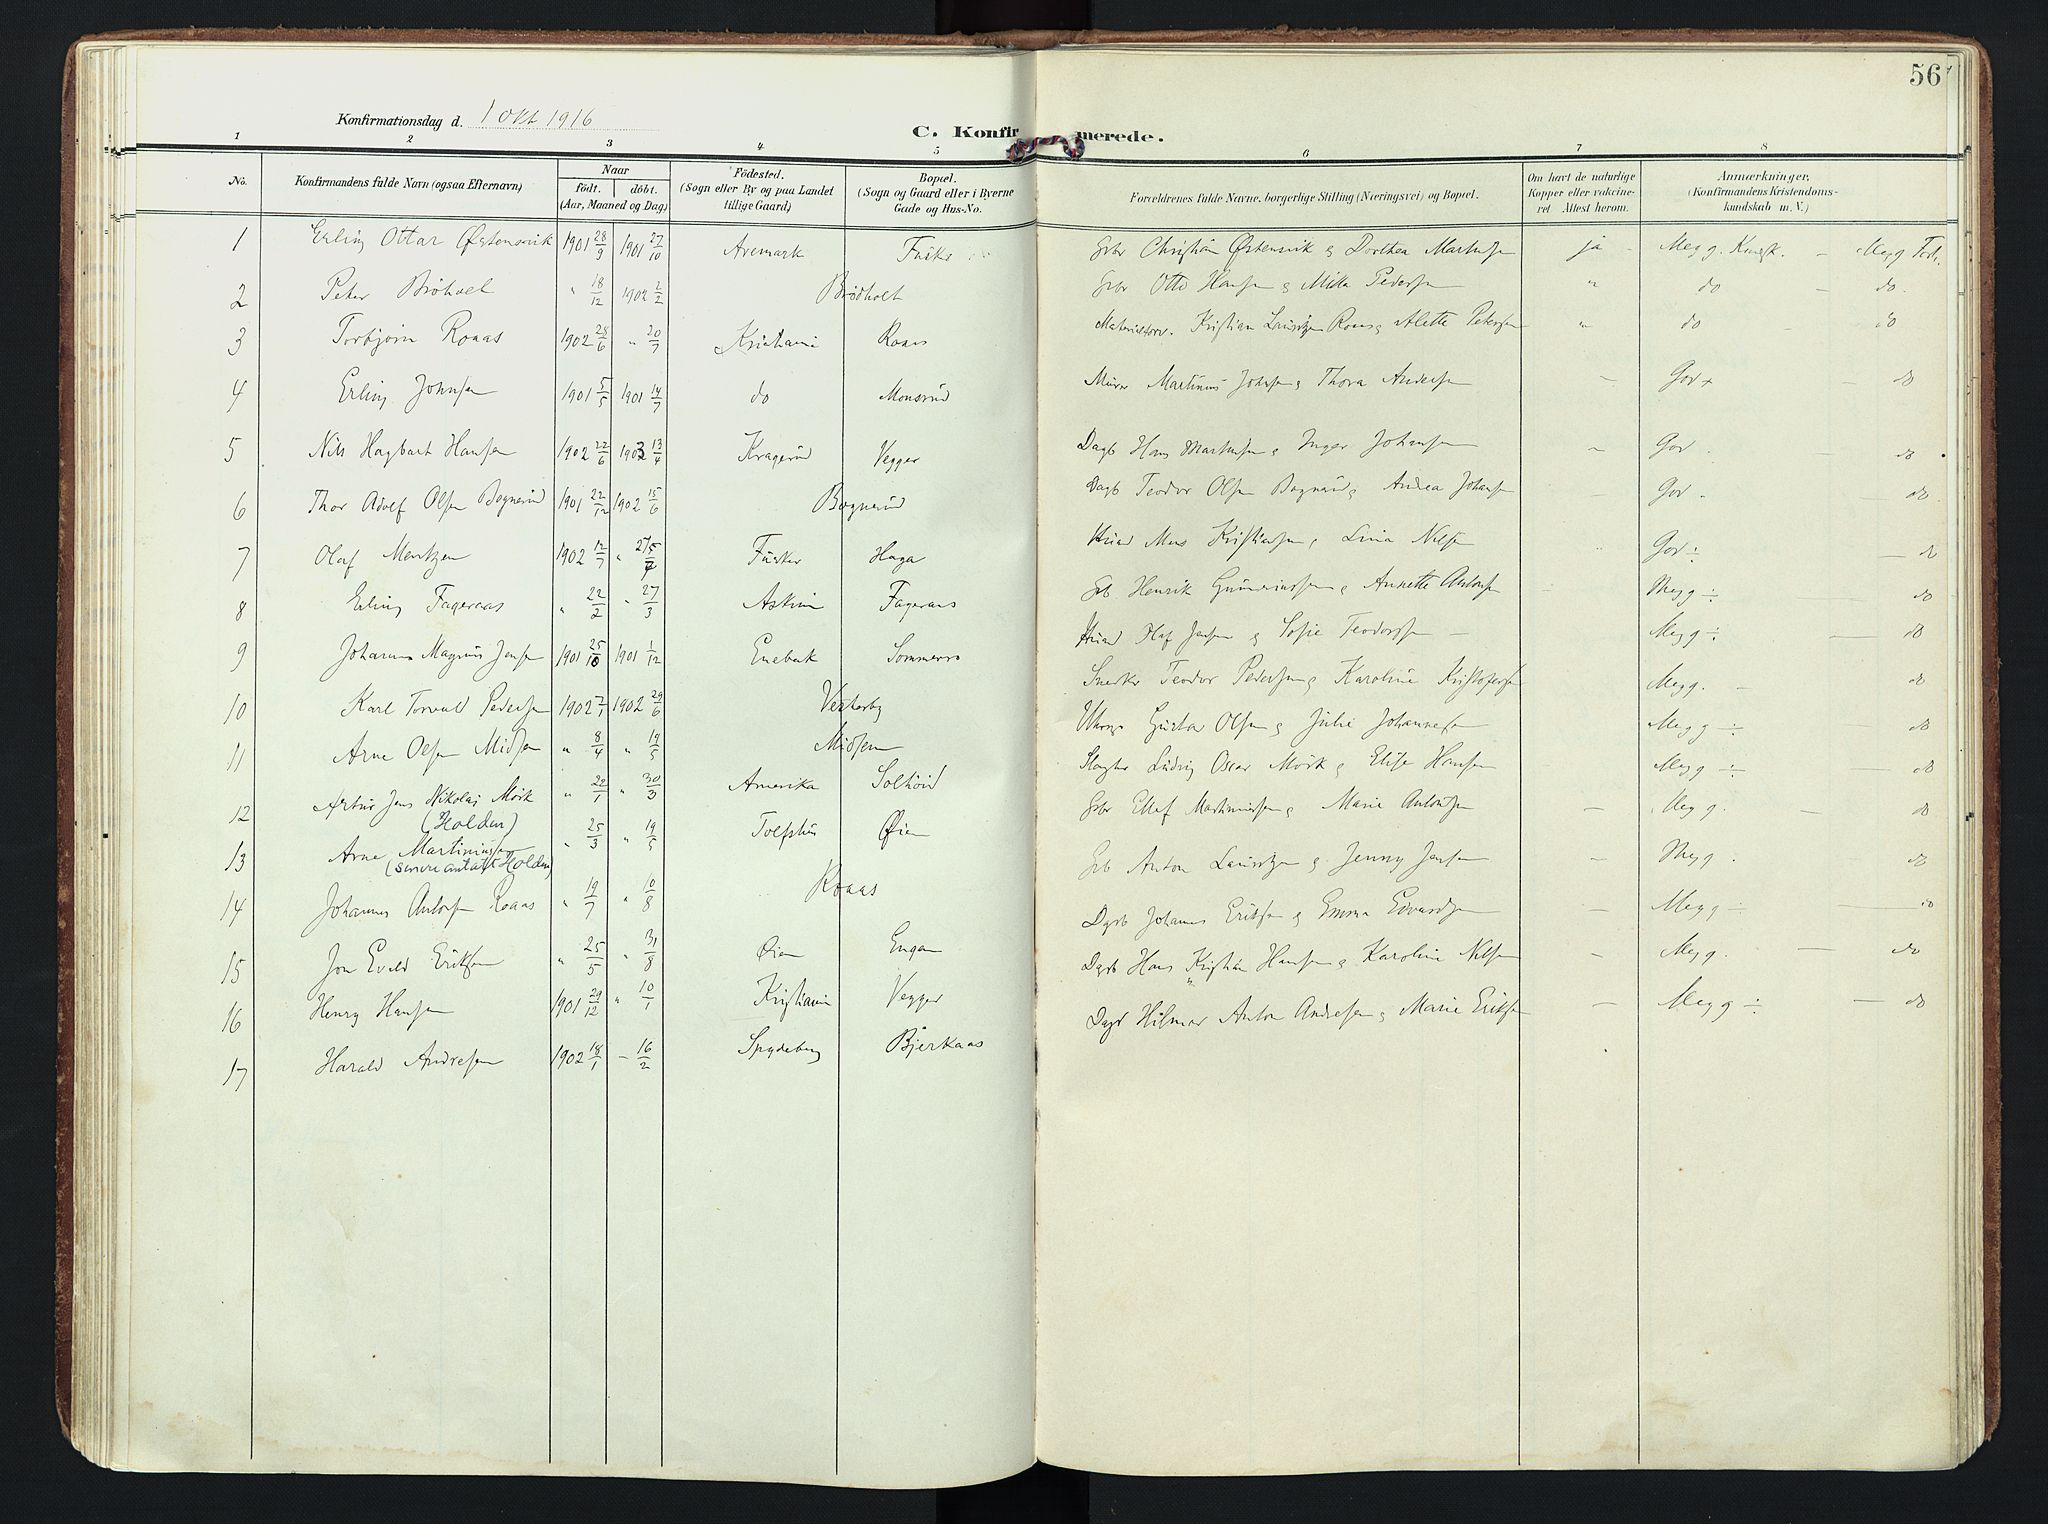 56
Konfirmationsdag d. 1 Okt 1916
C. Konfirmerede.
1 2 3 4 5 6 7 8
No. Konfirmandens fulde Navn (ogsaa Efternavn) Naar født. døbt. (Aar, Maaned og Dag) Fødested. (Sogn eller By og paa Landet tillige Gaard) Bopæl. (Sogn og Gaard eller i Byerne Gade og Hus-No. Forældrenes fulde Navne, borgerlige Stilling (Næringsvei) og Bopæl. Om havt de naturlige Kopper eller vakcineret Attest herom. Anmærkninger, (Konfirmandens Kristendomskundskab m. V.)
1 Erling Ottar Østensvik 1901 28/9 1901 27/10 Aremark Gbr Christian Østensvik & Dorthea ja Meg g. Kundsk. – Meg g
2 Peter Brøholt " 18/12 1902 2/2 Brødholt Gbr Otto Hansen & Milla Pedersen " do – do.
3 Torbjørn Roaas 1902 28/6 " 20/7 Kristiania Roaas Kristian Lauritzen Roaas & Alette Petersen " do - do
4 Erling Johnsen 1901 5/5 1901 14/7 do Monsrud Murer Martinius Johnsen & Thora Andersen – Gov + – do
5 Nils Hagbart Hansen 1902 22/6 1903 13/4 Kragerud Vegger Dagb Hans Martinsen & Inger Johansen – Gov. – do
6 Thor Adolf Olsen Bognerud 1901 22/12 1902 15/6 Bognerud Dagb Teodor Olsen Bognerud & Andrea Johansen – Gov. – do
7 Olaf Mentzen 1902 12/7 " Haga Kristiansen & Lina Nilsen Gov ÷ – do
8 Erling Fageraas " 22/2 " 27/3 Askim Fageraas Gb Henrik & Annette Antonsen – Meg g ÷ — do
9 Johannes Magnus Jensen 1901 25/10 1901 1/12 Enebak Olaf Jensen & Sofie Teodorsen – Meg g ÷ — do
10 Karl Torvald Pedersen 1902 7/1 1902 29/6 Vesterby Snedker Teodor Pedersen & Karoline Kristofersen Meg g. – do
11 Arne Olsen Midsem " 8/4 " 19/5 Midsem Gustav Olsen & Julie Johannesen Meg g ÷ – do
12 Artur Jens Nikolaj Mørk " 22/1 " 30/3 Amerika Slagter Ludvig Oscar Mørk & Elise Hansen Meg g ÷ – do
(Holden)
13 Arne Martiniussen " 25/3 " 19/5 Øien Gbr Ellef Martiniussen & Marie Antonsen – Meg g. – do
(senere antatt Holden)
14 Johannes Antonsen Roaas " 19/7 " 10/8 Roaas Gb Anton Lauritzen & Jenny Jensen – Meg g. do
15 Jon Evald Eriksen " 25/5 " 31/8 Øien Engen Dagb Johannes Eriksen & Emma Edvardsen – Meg g ÷ — do
16 Henry Hansen 1901 29/12 " 10/1 Kristiania Vegger Dagb Hans Kristian Hansen & Karoline Nilsen – Meg g. — do
17 Harald Andresen 1902 18/1 – 16/2 Spydeberg Bjerkaas Dagb Hilmar Anton Andresen & Marie Eriksen – Meg g ÷ – do